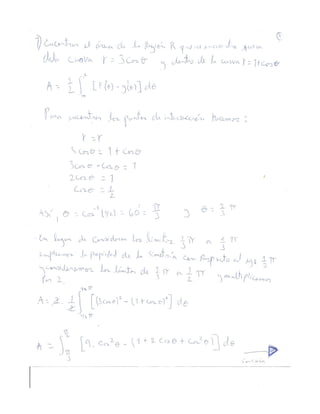 7) Encuentren el área de la Región R que se encuentra
de la curva r = 3 cos θ y dentro de la curva r = 1 + cos θ
A = 1/2 ∫ [f(θ) - g(θ)] dθ
Para encontrar los puntos de intersección hacemos :
r = r
3 cos θ = 1 + cos θ
3 cos θ - cos θ = 1
2 cos θ = 1
cos θ = 1/2
así, θ = cos⁻¹(1/2) = 60° = π/3 y θ =
En lugar de considerar los límites a π
la propiedad de la simetría con respecto al eje 1/2 π
y consideramos los límites de 1/3 π a 1/2 π y multiplicamos
por 2.
A = 2 · 1/2 ∫ [(3 cos θ)² - (1 + cos θ)²] dθ
A = ∫ [9 cos² θ - (1 + 2 cos θ + cos² θ)] dθ